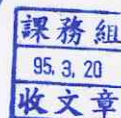 課務組
95. 3. 20
收文章